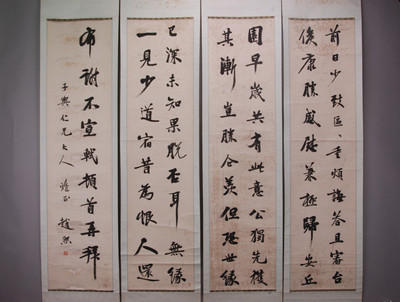 前日少致區區重煩誨答且審台
候康勝感慰兼極歸安丘
園早歲共有此意公獨先獲
其漸豈勝企羨但恐世緣
已深未知果脫否耳無緣
一見少道宿昔為恨人還
布謝不宣軾頓首再拜
子興仁兄大人 正 趙熙